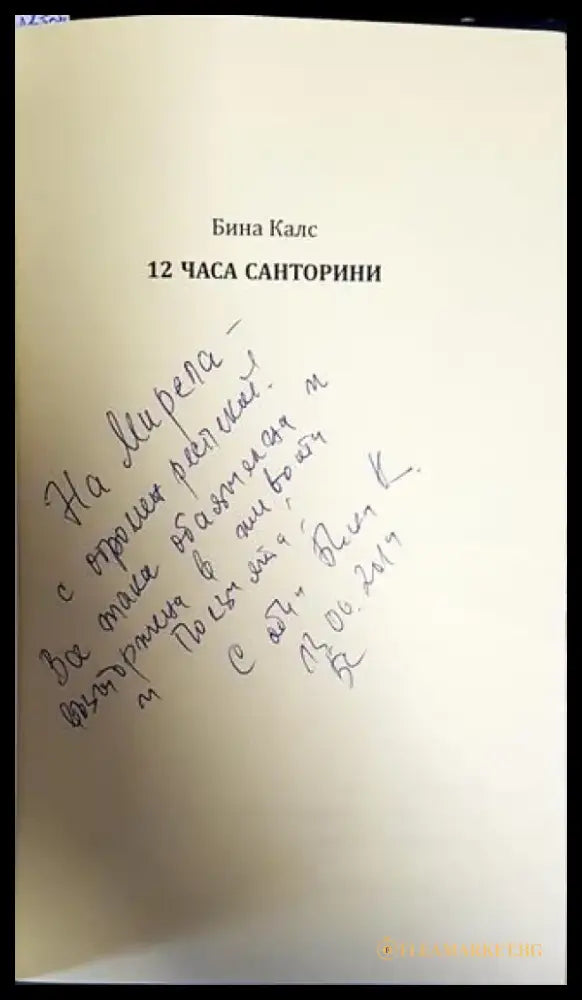 Бина Калс
12 ЧАСА САНТОРИНИ
На Мирела –
с огромен респект!
Все така обаятелна и
възторжена в живота
и
С обич Бина К.
06. 2019
БК